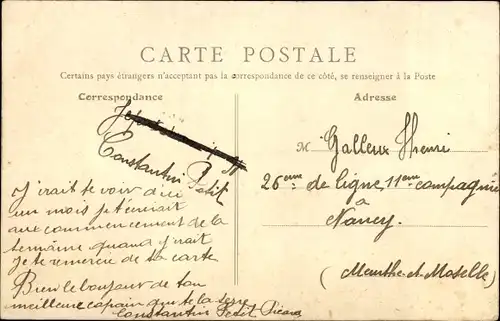 CARTE POSTALE
Certains pays étrangers n'acceptant pas la correspondance de ce côté, se renseigner à la Poste
Correspondance
Adresse
Constantin Petit
M. Galleux Henri
26eme de ligne 11eme compagnie
à
Nancy
(Meurthe-et-Moselle)
J'irait te voir d'ici
un mois je t'écrirait
aux commencement de la
semaine quand j'irait
je te remercie de ta carte
Bien le bonjour de ton
meilleure copain qui te la serre
Constantin Petit Picard